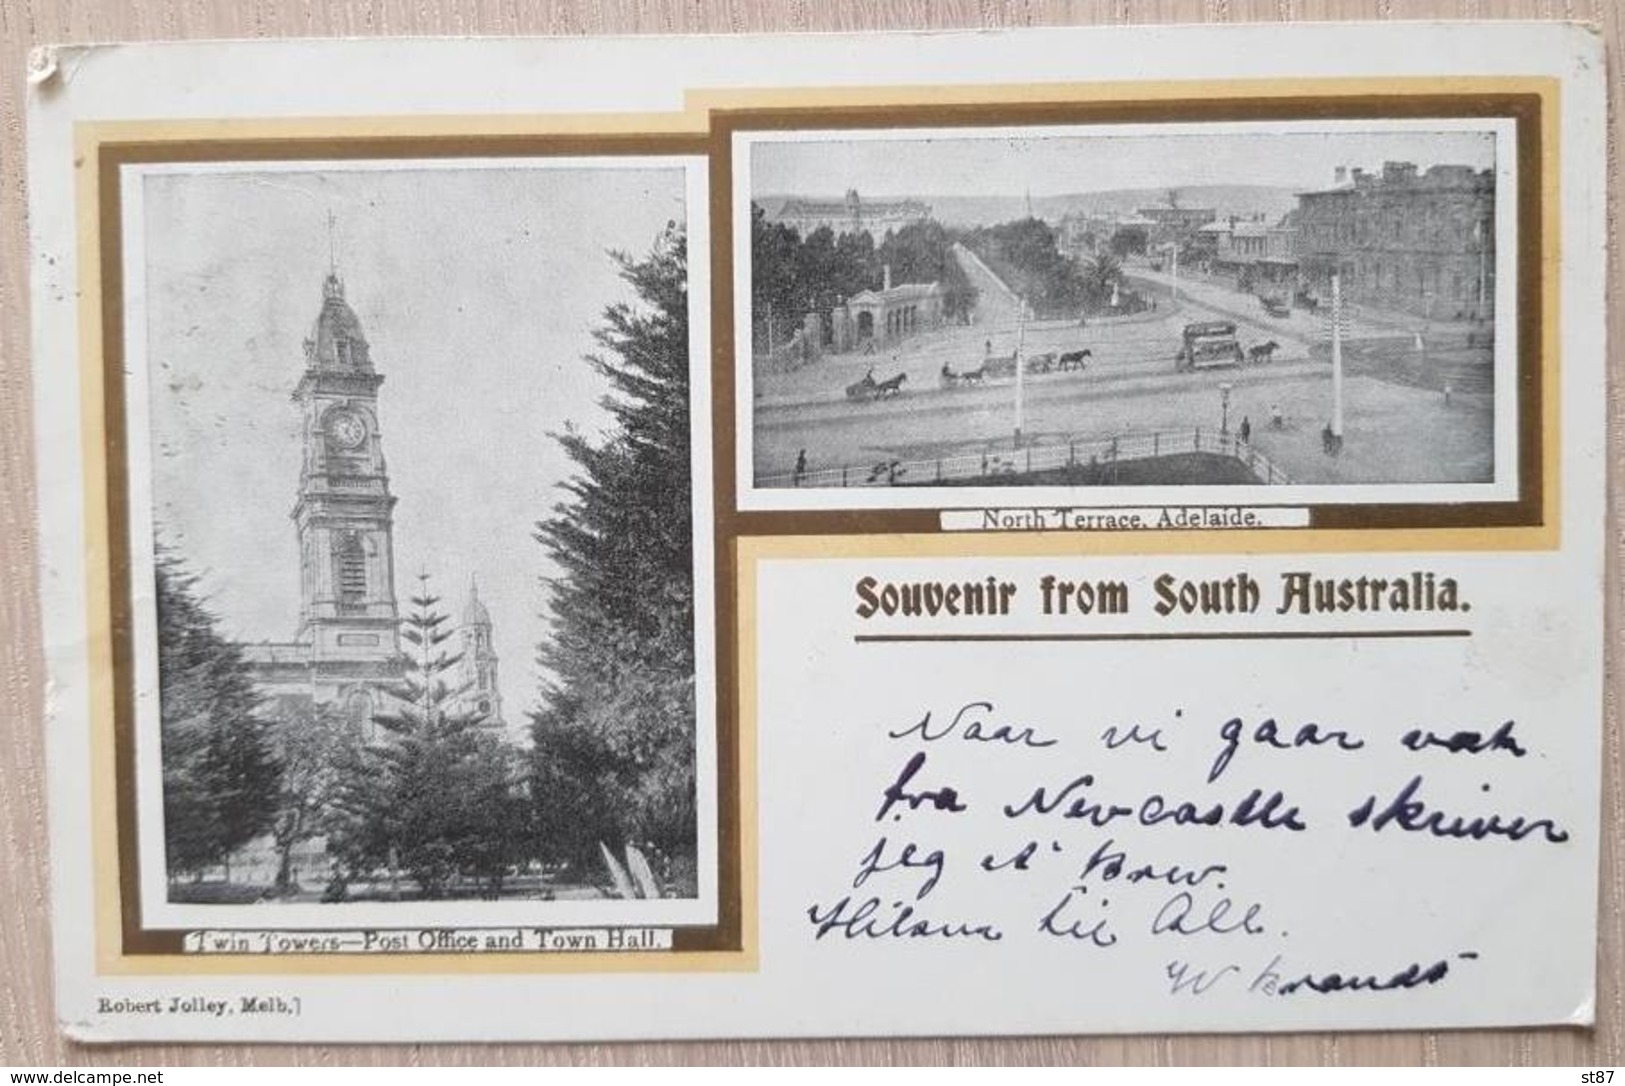 North Terrace, Adelaide.
Souvenir from South Australia.
Naar vi gaar væk
fra Newcastle skriver
jeg et Brev.
Hilsen til All.
W Brandt
Twin Towers—Post Office and Town Hall.
Robert Jolley, Melb.]
www.delcampe.net
st87